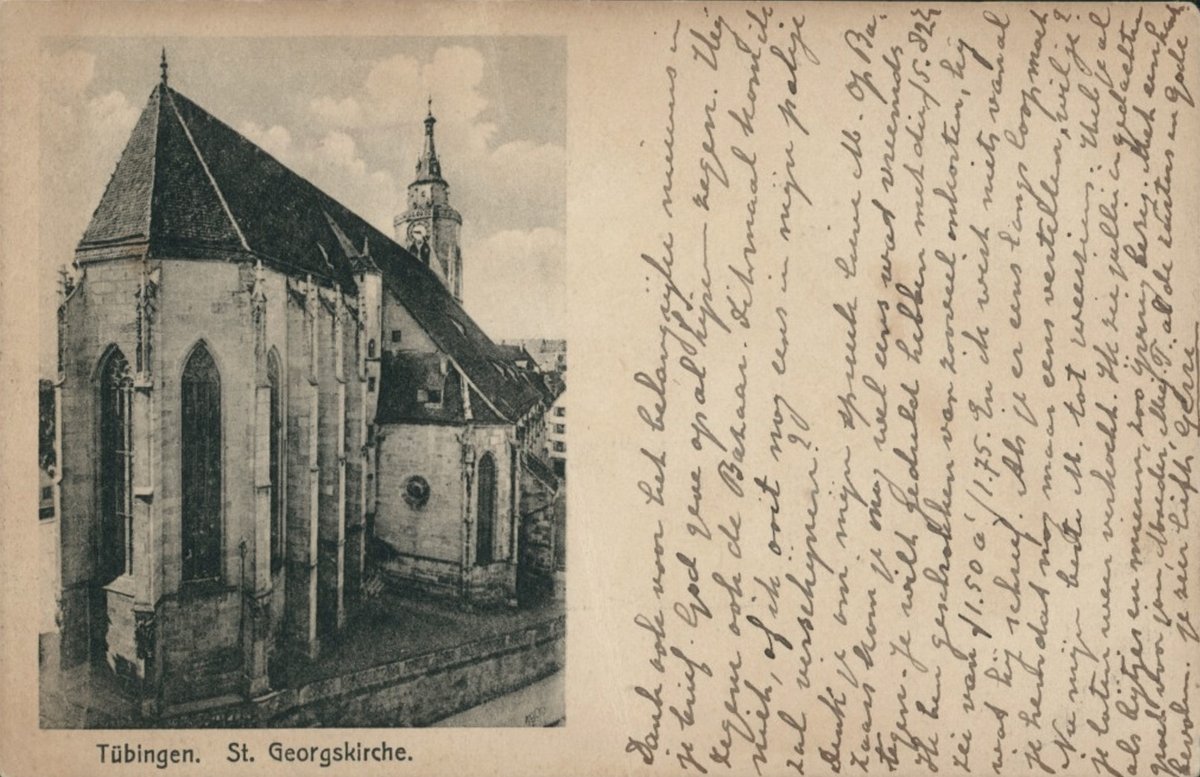 Tübingen. St. Georgskirche.
Dank ook voor het belangrijke nieuws in
je brief. God geve op al hijpen zegen. Uw
zegen ook de Bahaar. Ditmaal kom ik
niet, of ik ooit nog eens in mijn pakje
zal verschijnen?
Denk je om mijn spreuk lieve M. op Ba-
zaar kom je nog wel eens wat vreemds
tegen. Je wilt geduld hebben met die f 5.82½
Ik ben geschrokken van zooveel onkosten, hij
zei van f 1.50 à f 1.75. En ik wist niets van al
wat hij schreef. Als je er eens langs loop moet
je hem dat nog maar eens vertellen, wil je?
Nu mijn beste M. tot weerziens. Zul je al
je luten weer verkocht. Ik zie jullie in gedachten
als bijtjes en mieren, zoo ijverig bezig. Meh eenhart
groet voor jou, Moeder, Mej. T. al de zusters in Gode
bevolen. Je zeer liefh. Gere